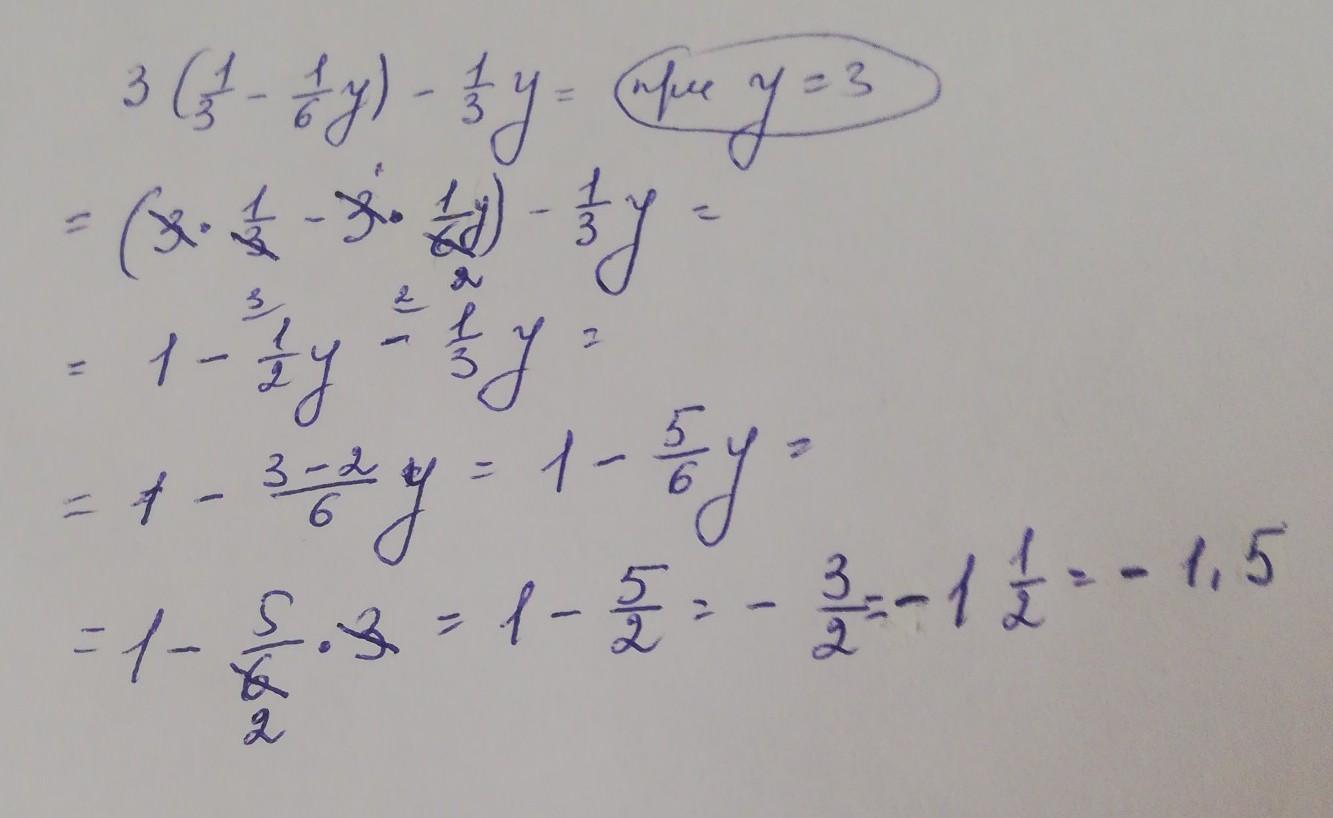 3 (1/3 - 1/6 y) - 1/3 y = при y = 3
= (3 · 1/3 - 3 · 1/6 y) - 1/3 y =
1
2
3 2
= 1 - 1/2 y - 1/3 y =
= 1 - 3-2/6 y = 1 - 5/6 y =
= 1 - 5/6 · 3 = 1 - 5/2 = - 3/2 = - 1 1/2 = - 1,5
2